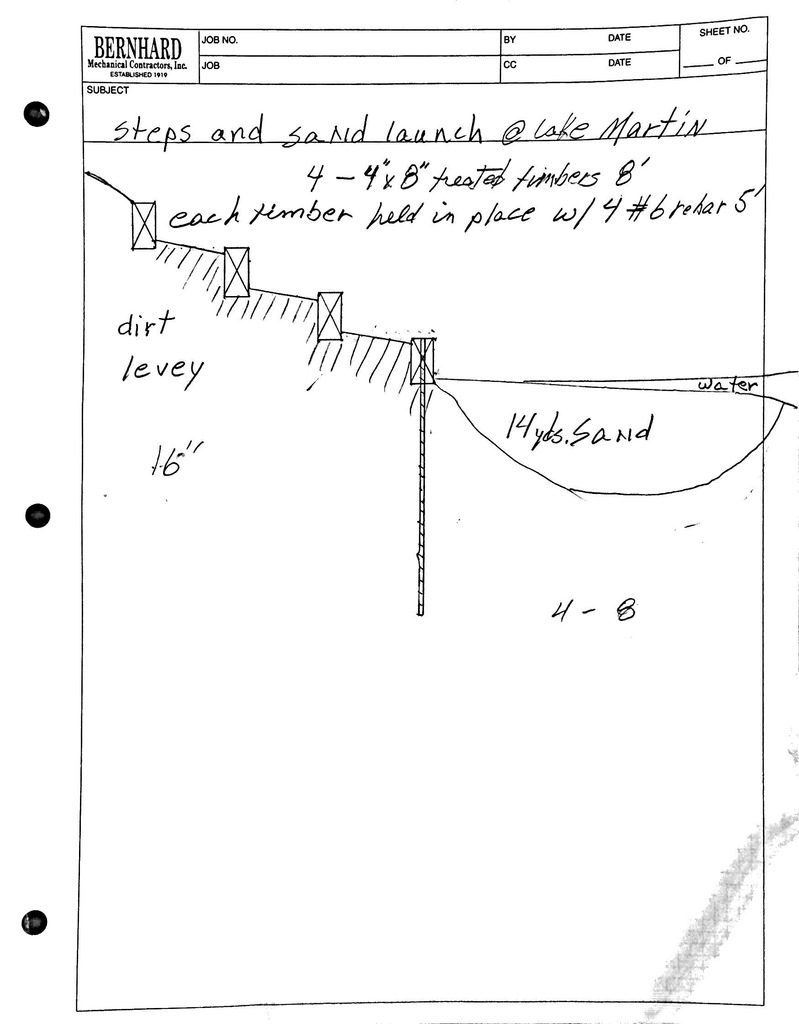 BERNHARD
Mechanical Contractors, Inc.
ESTABLISHED 1919
JOB NO.
JOB
BY DATE
CC DATE
SHEET NO.
OF
SUBJECT
steps and sand launch @ Lake Martin
4 - 4"x 8" treated timbers 8'
each timber held in place w/ 4 #6 rebar 5'
dirt
levey
water
14 yds. Sand
16"
4 - 8